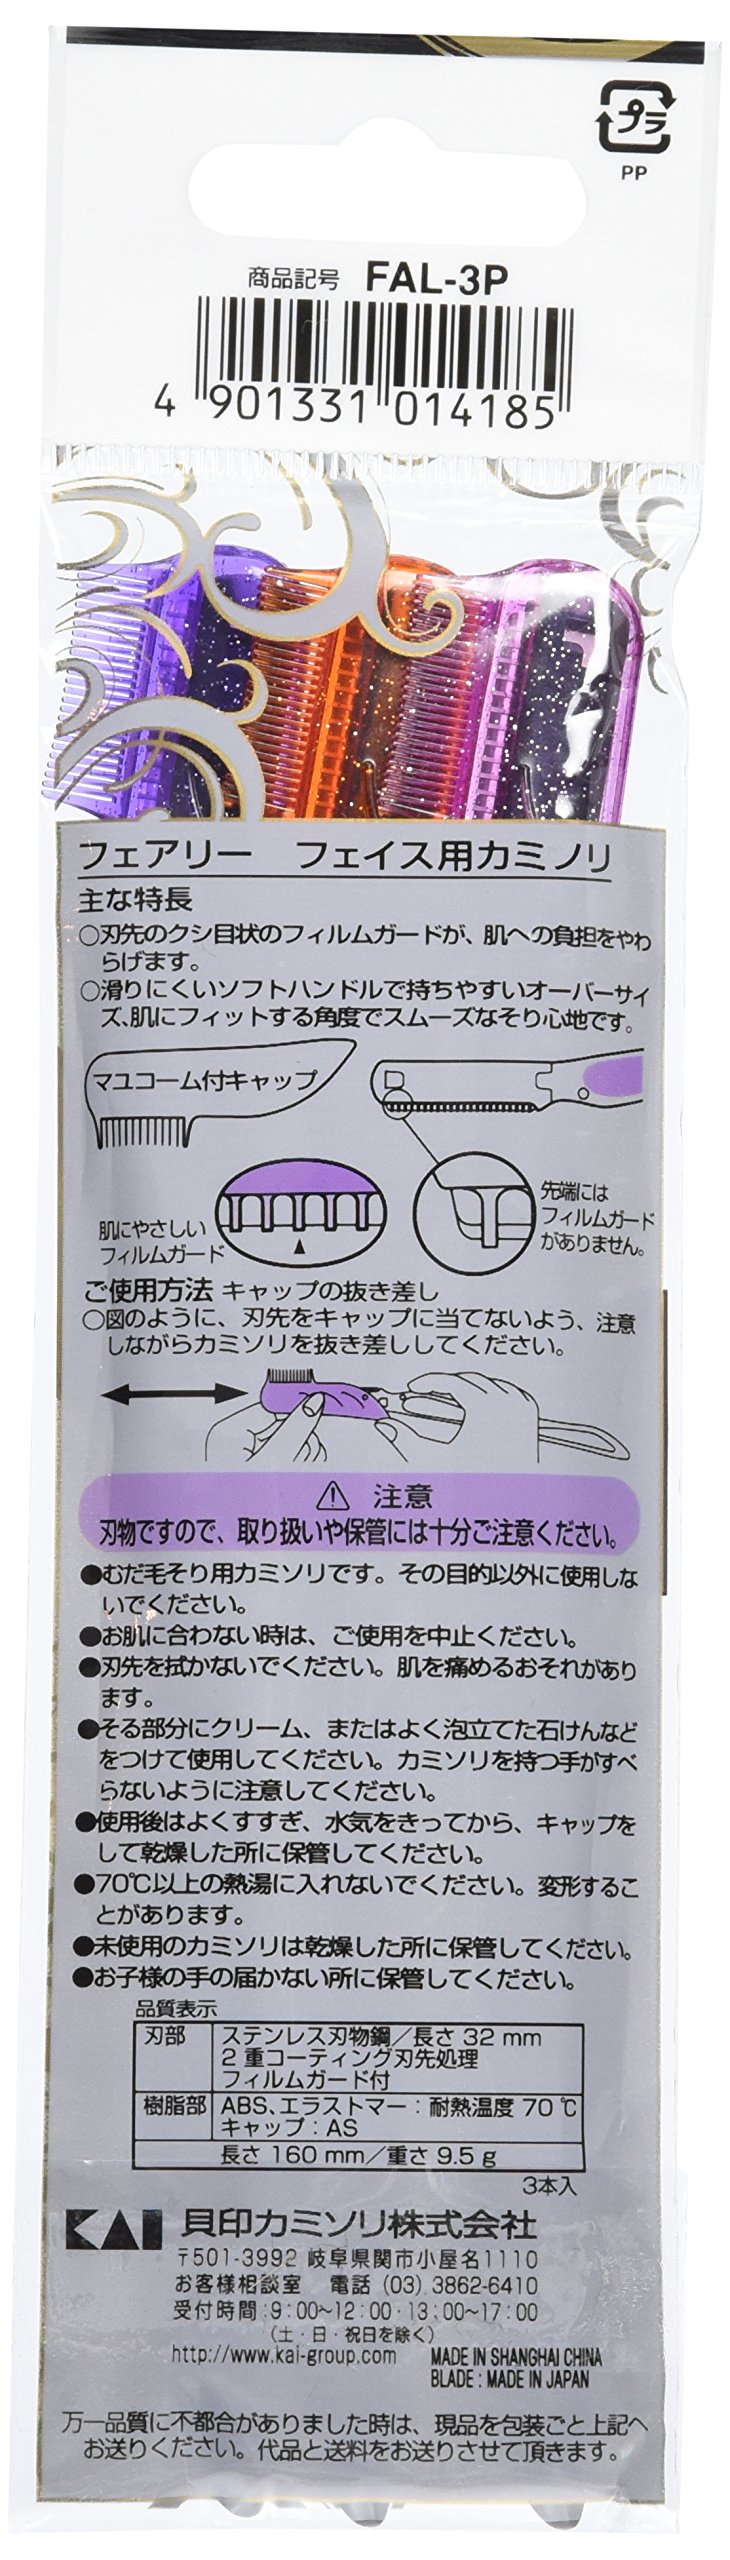 プラ
PP
商品記号 FAL-3P
4 901331 014185
フェアリー フェイス用カミノリ
主な特長
○刃先のクシ目状のフィルムガードが、肌への負担をやわ
らげます。
○滑りにくいソフトハンドルで持ちやすいオーバーサイ
ズ、肌にフィットする角度でスムーズなそり心地です。
マユコーム付キャップ
肌にやさしい
フィルムガード
先端には
フィルムガード
がありません。
ご使用方法 キャップの抜き差し
○図のように、刃先をキャップに当てないよう、注意
しながらカミソリを抜き差ししてください。
⚠ 注意
刃物ですので、取り扱いや保管には十分ご注意ください。
●むだ毛そり用カミソリです。その目的以外に使用しな
いでください。
●お肌に合わない時は、ご使用を中止ください。
●刃先を拭かないでください。肌を痛めるおそれがあり
ます。
●そる部分にクリーム、またはよく泡立てた石けんなど
をつけて使用してください。カミソリを持つ手がすべ
らないように注意してください。
●使用後はよくすすぎ、水気をきってから、キャップを
して乾燥した所に保管してください。
●70℃以上の熱湯に入れないでください。変形するこ
とがあります。
●未使用のカミソリは乾燥した所に保管してください。
●お子様の手の届かない所に保管してください。
品質表示
刃部 ステンレス刃物鋼／長さ 32 mm
2 重コーティング刃先処理
フィルムガード付
樹脂部 ABS、エラストマー：耐熱温度 70 ℃
キャップ：AS
長さ 160 mm／重さ 9.5 g
3本入
KAI 貝印カミソリ株式会社
〒501-3992 岐阜県関市小屋名1110
お客様相談室 電話 (03) 3862-6410
受付時間：9：00〜12：00・13：00〜17：00
（土・日・祝日を除く）
http://www.kai-group.com MADE IN SHANGHAI CHINA
BLADE : MADE IN JAPAN
万一品質に不都合がありました時は、現品を包装ごと上記へ
お送りください。代品と送料をお送りさせて頂きます。